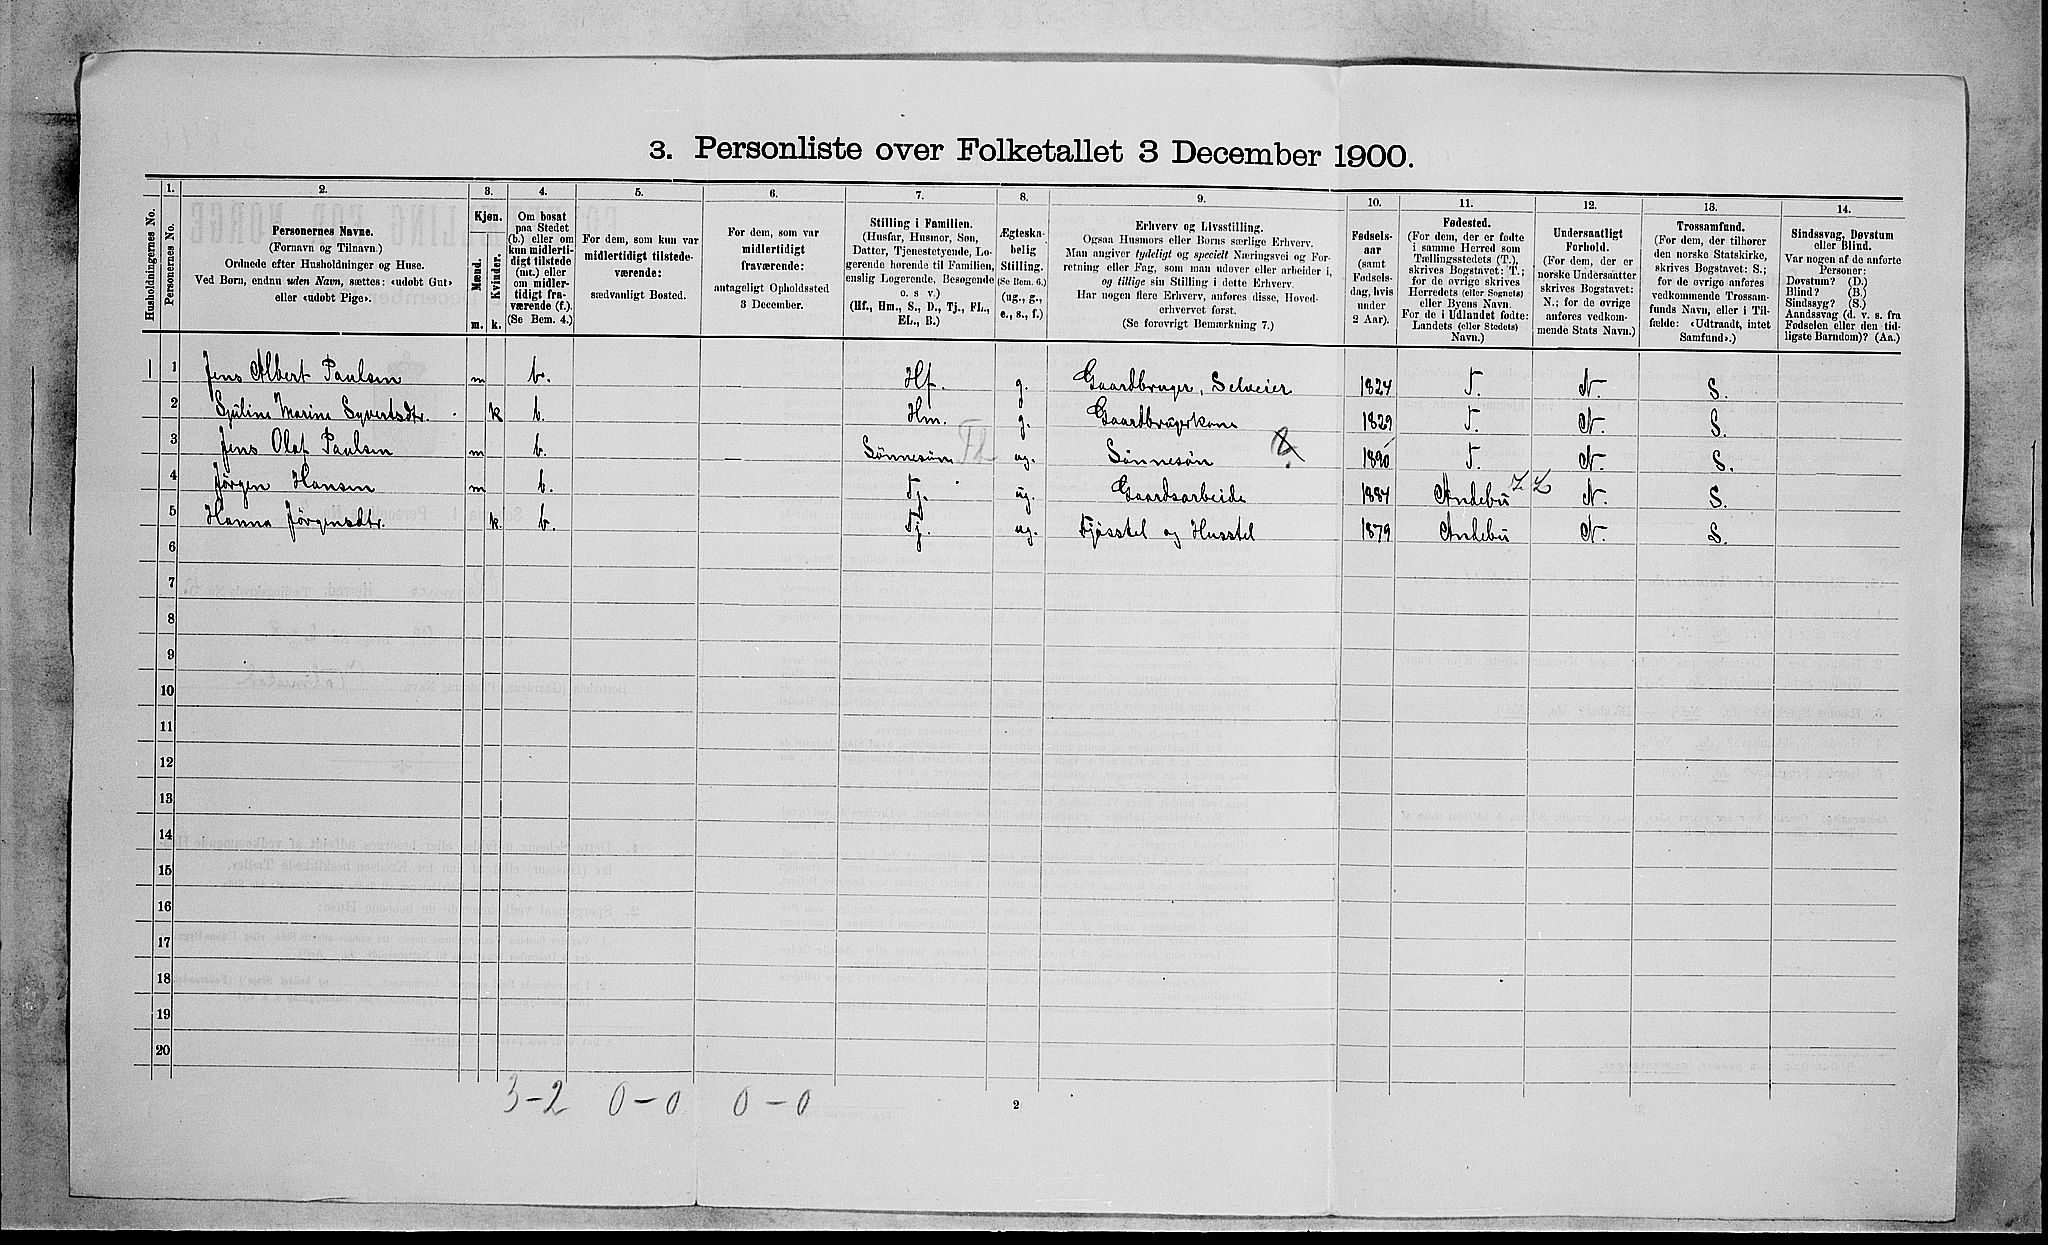 3. Personliste over Folketallet 3 December 1900.
Husholdningernes No.
1.
Personernes No.
2.
Personernes Navne.
(Fornavn og Tilnavn.)
Ordnede efter Husholdninger og Huse.
Ved Børn, endnu uden Navn, sættes: «udøbt Gut»
eller «udøbt Pige».
3.
Kjøn.
Mænd.
Kvinder.
m.
k.
4.
Om bosat
paa Stedet
(b.) eller om
kun midlerti-
digt tilstede
(mt.) eller
om midler-
tidigt fra-
værende (f.).
(Se Bem. 4.)
5.
For dem, som kun var
midlertidigt tilstede-
værende:
sædvanligt Bosted.
6.
For dem, som var
midlertidigt
fraværende:
antageligt Opholdssted
3 December.
7.
Stilling i Familien.
(Husfar, Husmor, Søn,
Datter, Tjenestetyende, Lo-
gerende hørende til Familien,
enslig Logerende, Besøgende
o. s v.)
(Hf., Hm., S., D., Tj., FL.,
EL., B.)
8.
Ægteska-
belig
Stilling.
(Se Bem. 6.)
(ug., g.,
e., s., f.)
9.
Erhverv og Livsstilling.
Ogsaa Husmors eller Børns særlige Erhverv.
Man angiver tydeligt og specielt Næringsvei og For-
retning eller Fag, som man udøver eller arbeider i,
og tillige sin Stilling i dette Erhverv.
Har nogen flere Erhverv, anføres disse, Hoved-
erhvervet først.
(Se forøvrigt Bemærkning 7.)
10.
Fødsels-
aar
(samt
Fødsels-
dag, hvis
under
2 Aar).
11.
Fødested.
(For dem, der er fødte
i samme Herred som
Tællingsstedets (T.),
skrives Bogstavet: T.;
for de øvrige skrives
Herredets (eller Sognets)
eller Byens Navn.
For de i Udlandet fødte:
Landets (eller Stedets)
Navn.)
12.
Undersaatligt
Forhold.
(For dem, der er
norske Undersaatter
skrives Bogstavet:
N.; for de øvrige
anføres vedkom-
mende Stats Navn.)
13.
Trossamfund.
(For dem, der tilhører
den norske Statskirke,
skrives Bogstavet: S.;
for de øvrige anføres
vedkommende Trossam-
funds Navn, eller i Til-
fælde: «Udtraadt, intet
Samfund».)
14.
Sindssvag, Døvstum
eller Blind.
Var nogen af de anførte
Personer:
Døvstum? (D.)
Blind? (B.)
Sindssyg? (S.)
Aandssvag (d. v. s. fra
Fødselen eller den tid-
ligste Barndom)? (Aa.)
1 1 Jens Albert Paulsen m b. Hf. g. Gaardbruger, Selveier 1824 T. N. S.
2 Sjuline Marine Syvertsdtr. k b. Hm. g. Gaardbrugerkone 1829 T. N. S.
3 Jens Olaf Paulsen m b. Sønnesøn ug. Sønnesøn 1890 T. N. S.
4 Jørgen Hansen m b. Tj. ug. Gaardsarbeide 1884 Andebu N. S.
5 Hanna Jørgensdtr. k. b. Tj. ug. Fjøsstel og Husstel 1879 Andebu N. S.
6
7
8
9
10
11
12
13
14
15
16
17
18
19
20
3-2 0-0 0-0
2